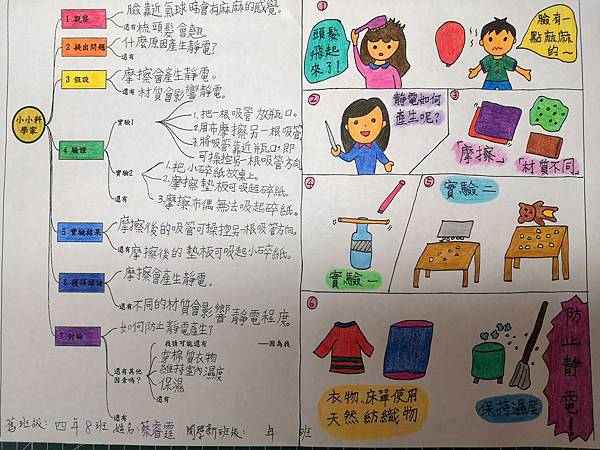 小小科學家
1 觀察
臉靠近氣球時會有麻麻的感覺。
還有 梳頭髮會翹
2 提出問題
什麼原因產生靜電?
還有
3 假設
摩擦會產生靜電。
還有 材質會影響靜電。
4 驗證
實驗1
1.把一根吸管放瓶口。
2.用布摩擦另一根吸管
3.將吸管靠近瓶口,即可操控另一根吸管方向
實驗2
1.把小碎紙放桌上。
2.摩擦墊板可吸起碎紙。
3.摩擦布偶無法吸起碎紙。
5 實驗結果
摩擦後的吸管可操控另一根吸管方向。
還有 摩擦後的墊板可吸起小碎紙。
6 獲得結論
摩擦會產生靜電。
還有 不同的材質會影響靜電程度。
7 討論
如何防止靜電產生?
還有其他因素嗎?
我猜可能還有
——因為我
穿棉質衣物
維持室內濕度
保濕
還有
還有
舊班級:四年8班 姓名:蔡睿霆 開學新班級: 年 班
①
頭髮飛起來了!
臉有一點麻麻的~
②
靜電如何產生呢?
③
「摩擦」
「材質不同」
④
實驗一
⑤
實驗二
⑥
衣物、床單使用
天然紡織物
保持濕度
防止靜電!